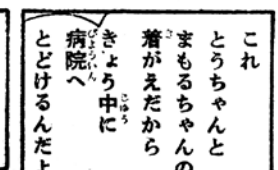 これ
とうちゃんと
まもるちゃんの
着がえだから
きょう中に
病院へ
とどけるんだよ